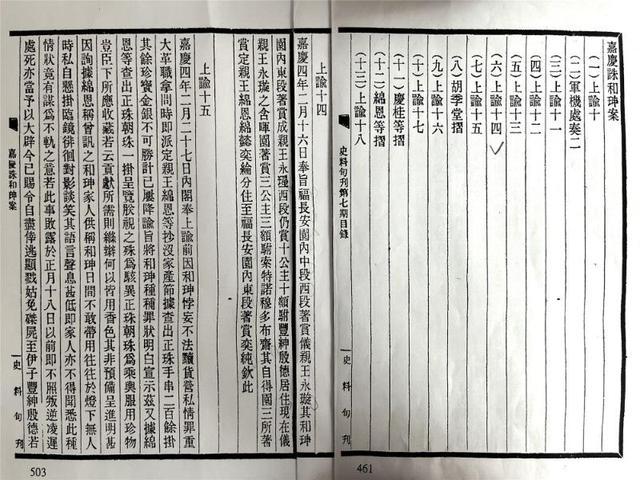 嘉慶誅和珅案
(一)上諭十
(二)軍機處奏二
(三)上諭十一
(四)上諭十二
(五)上諭十三
(六)上諭十四
(七)上諭十五
(八)胡季堂摺
(九)上諭十六
(十)上諭十七
(十一)慶桂等摺
(十二)綿恩等摺
(十三)上諭十八
史料旬刊第七期目錄
一 史料旬刊
461
上諭十四
嘉慶四年二月十六日奉旨福長安園內中段西段著賞儀親王永璇其和珅
園內東段著賞成親王永瑆西段仍賞十公主十額駙豐紳殷德居住現在儀
親王永璇之含暉園著賞三公主三額駙索特諾穆多布齋其自得園三所著
賞定親王綿恩綿懿奕綸分住至福長安園內東段著賞奕純欽此
上諭十五
嘉慶四年二月二十七日內閣奉上諭前因和珅悖妄不法黷貨營私情罪重
大革職拿問時即派定親王綿恩等抄沒家產節據查出正珠手串二百餘掛
其餘珍寶金銀不可勝計已屢降諭旨將和珅種種罪狀明白宣示茲又據綿
恩等查出正珠朝珠一掛呈覽朕視之殊為駭異正珠朝珠為乘輿服用珍物
豈臣下所應收藏若云貢獻所需則絲辮何以皆用香色其非預備呈進明甚
因詢據綿恩稱曾訊之和珅家人供稱和珅日間不敢帶用往往於燈下無人
時私自懸掛臨鏡徘徊對影談笑其語言聲息甚低即家人亦不得聞悉此種
情狀竟有謀為不軌之意若此事敗露於正月十八日以前即不照叛逆凌遲
處死亦當予以大辟今已賜令自盡倖逃顯戮姑免磔屍至伊子豐紳殷德若
嘉慶誅和珅案
一 史料旬刊
503